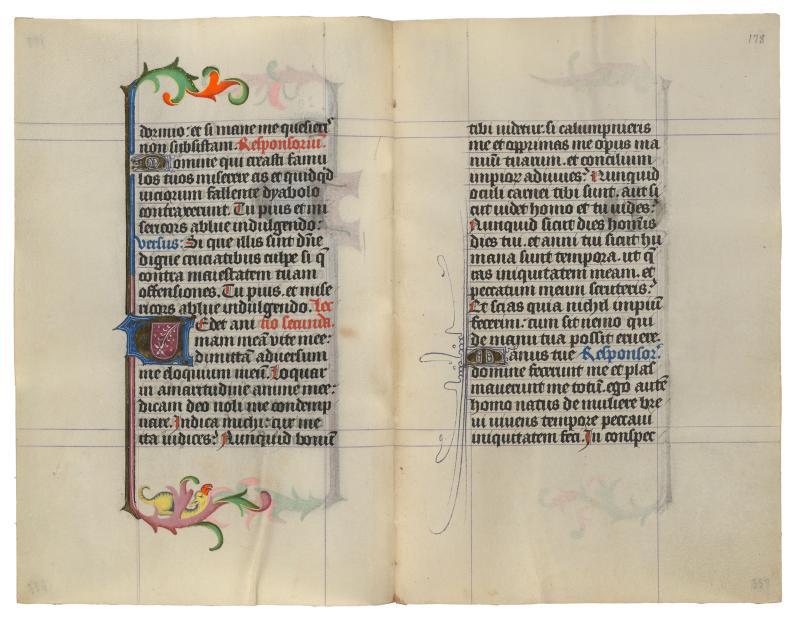 dormio: et si mane me quesieris
non subsistam. Responsoriũ.
Domine qui creasti famu
los tuos miserere eis et quidqd
viciorum fallente dyabolo
contraxerunt. Tu pius et mi
sericors ablue indulgendo:
versus: Si que illis sunt dñe
digne cruciatibus culpe si q̃
contra maiestatem tuam
offensiones. Tu pius. et mise
ricors ablue indulgendo. Lec
Tedet ani tio secunda.
mam meã vite mee:
dimittã adversum
me eloquium meũ. Loquar
in amaritudine anime mee:
dicam deo noli me condemp
nare. Indica michi: cur me
ita iudices? Nunquid bonũ
178
tibi videtur. si calumpnieris
me et opprimas me opus ma
nuũ tuarum. et concilium
impioꝝ adiuves? Nunquid
oculi carnei tibi sunt. aut si
cut videt homo et tu vides?
Nunquid sicut dies hominis
dies tui. et anni tui sicut hu
mana sunt tempora. ut q̃
ras iniquitatem meam. et
peccatum meum scruteris?
Et scias quia nichil impiũ
fecerim: cum sit nemo qui
de manu tua possit eruere.
Manus tue Responsor̃.
domine fecerunt me et plas
maverunt me totũ. ego autẽ
homo natus de muliere bre
vi vivens tempore peccavi
iniquitatem feci. In conspec